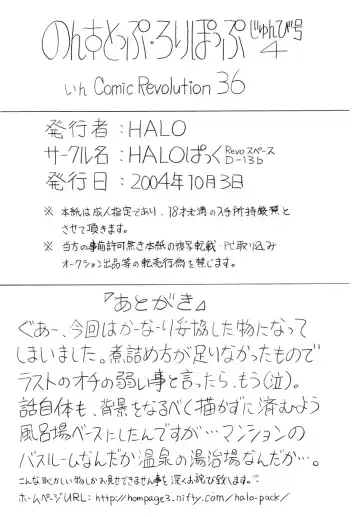 のんすとっぷ・ろりぽっぷ じゅんび号4
いん Comic Revolution 36
発行者：HALO
サークル名：HALOぱっく Revoスペース D-13b
発行日：2004年10月3日
※ 本紙は成人指定であり、18才未満の入手所持厳禁と
させて頂きます。
※ 当方の事前許可無き本紙の複写転載・PC取り込み
オークション出品等の転売行為を禁じます。
『あとがき』
ぐあー、今回はかーなーり妥協した物になって
しまいました。煮詰め方が足りなかったもので
ラストのオチの弱い事と言ったら、もう(泣)。
話自体も、背景をなるべく描かずに済むよう
風呂場ベースにしたんですが…マンションの
バスルームなんだか温泉の湯治場なんだか…。
こんな恥かしい物しかお見せできません事を深くお詫び致します。
ホームページURL：http://hompage3.nifty.com/halo-pack/